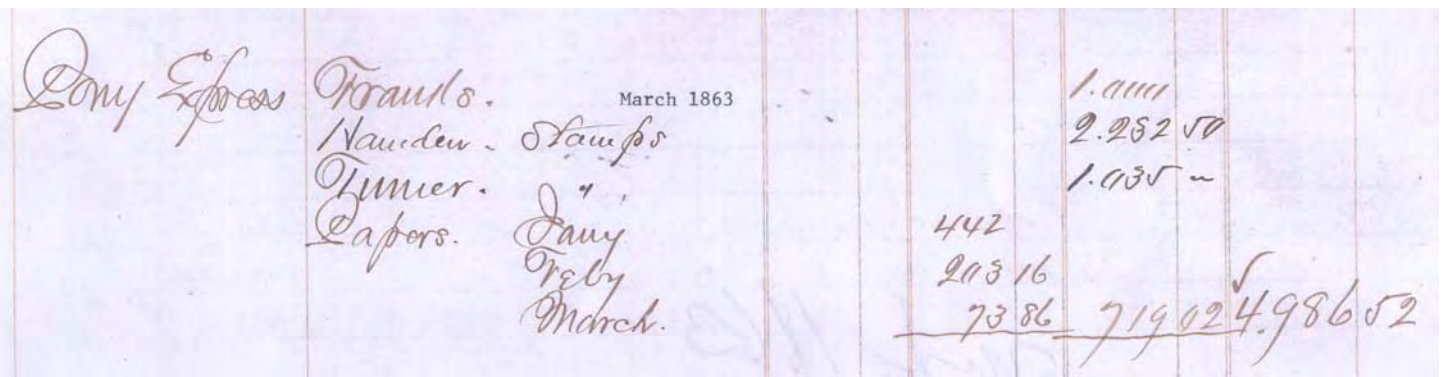 Pony Express Franks. March 1863 1.000
Harnden - Stamps 2.232 50
Turner. " 1.035 ~
Papers. Jany 442
Feby 203 16
March. 73 86 719 02 4.986 52